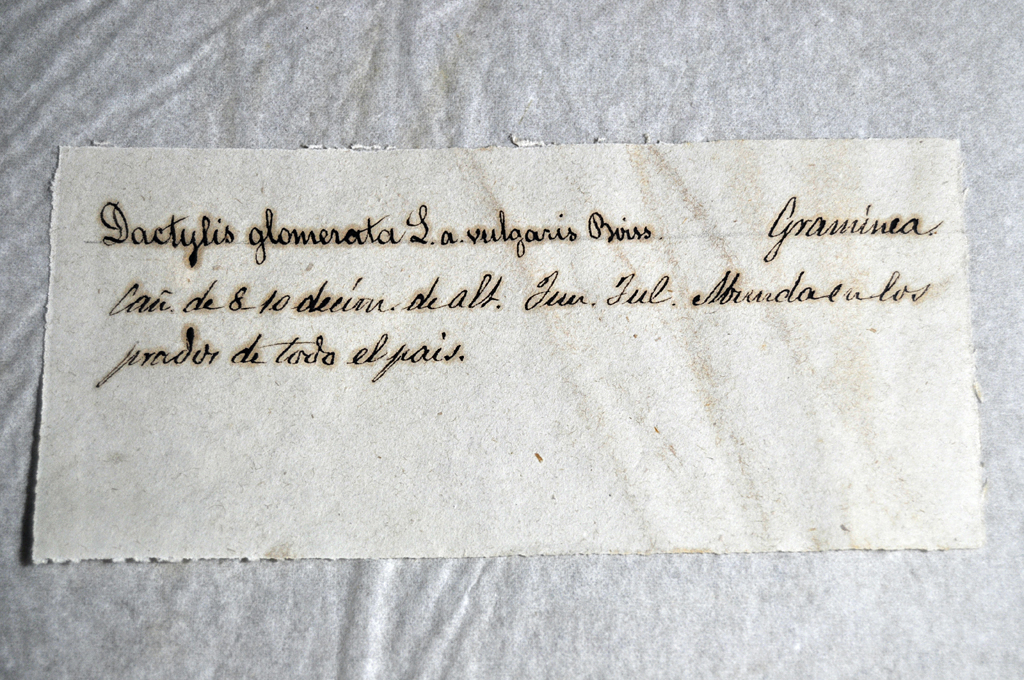 Dactylis glomerata L. a. vulgaris Boiss. Gramínea.
Cañ. de 8 10 decím. de alt. Jun. Jul. Abunda en los
prados de todo el pais.